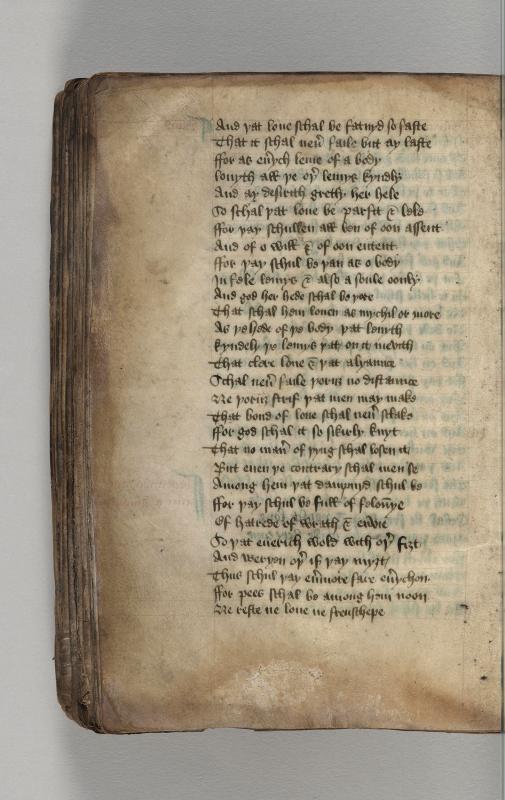 And yat loue schal be fatnyd so faste
That it schal neu͛ faile but ay laste
ffor as eu͛ych leme of a body
louyth all ye oy͛ lemys kyndly
And ay desirith gretly her hele
So schal yat loue be parfit & lele
ffor yay schullen all ben of oon assent
And of o will & of oon entent
ffor yay schul be yan as o body
In fele lemys & also a soule oonly
And god her hede schal be yore
That schal hem louen as mychil or more
As ye hede of ye body yat lemyth
kyndely ye lemys yat on it
That clere loue & yat alyaunce
Schal neu͛ faile yoruz no distaunce
Ne yoruz strif yat men may make
That bond of loue schal neu͛ slake
ffor god schal it so sikirly knyt
That no man͛ of yyng schal losen it
But euen ye contrary schal men se
Among hem yat dampnyd schul be
ffor yay schul be full of felonye
Of hatrede of wrath & enuie
So yat euerich wold with oy͛ fizt
And weryen oy͛ if yay myzt
Thus schul yay eu͛more fare eu͛ychon
ffor pees schal be among hem noon
Ne reste ne loue ne frenschepe